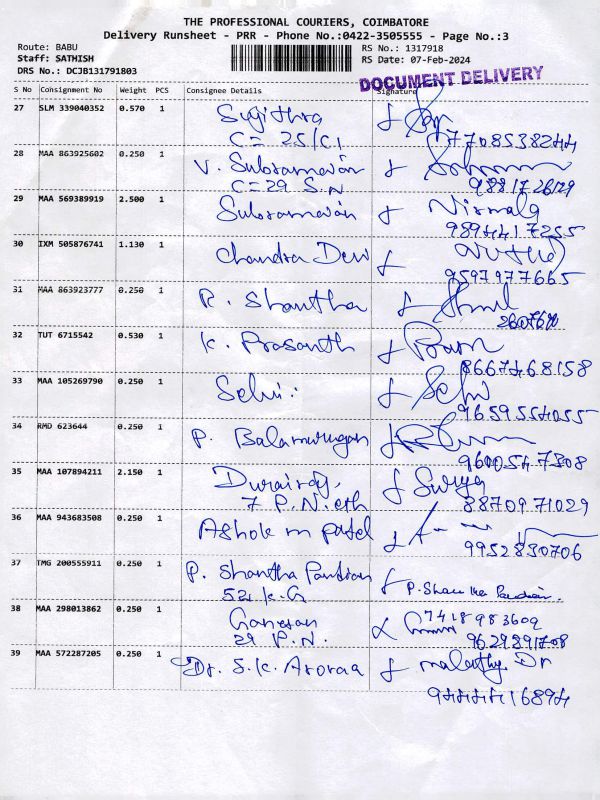 THE PROFESSIONAL COURIERS, COIMBATORE
Delivery Runsheet - PRR - Phone No.:0422-3505555 - Page No.:3
Route: BABU RS No.: 1317918
Staff: SATHISH RS Date: 07-Feb-2024
DRS No.: DCJB131791803 DOCUMENT DELIVERY
S No Consignment No Weight PCS Consignee Details Signature
27 SLM 339040352 0.570 1 Sujithra
C=25/C1 7708538244
28 MAA 863925602 0.250 1 V. Subramanian
C=29 S.N
29 MAA 569389919 2.500 1 Subramanian Nirmala
9894417255
30 IXM 505876741 1.130 1 Chandra Devi
9597977665
31 MAA 863923777 0.250 1 R. Shantha
32 TUT 6715542 0.530 1 K. Prasanth
8667468158
33 MAA 105269790 0.250 1 Selvi Selvi
9659554055
34 RMD 623644 0.250 1 P. Balamurugan
9600547308
35 MAA 107894211 2.150 1 Durairaj Surya
7 P.N. 8870971029
36 MAA 943683508 0.250 1 Ashok m patel
9952830706
37 TMG 200555911 0.250 1 P. Shantha Pandian
52 K.G P. Shantha Pandian.
38 MAA 298013862 0.250 1 Ganesan 7418983602
29 P.N. 9629891708
39 MAA 572287205 0.250 1 Dr. S.K. Aroraa malathy. Dr
9444416894